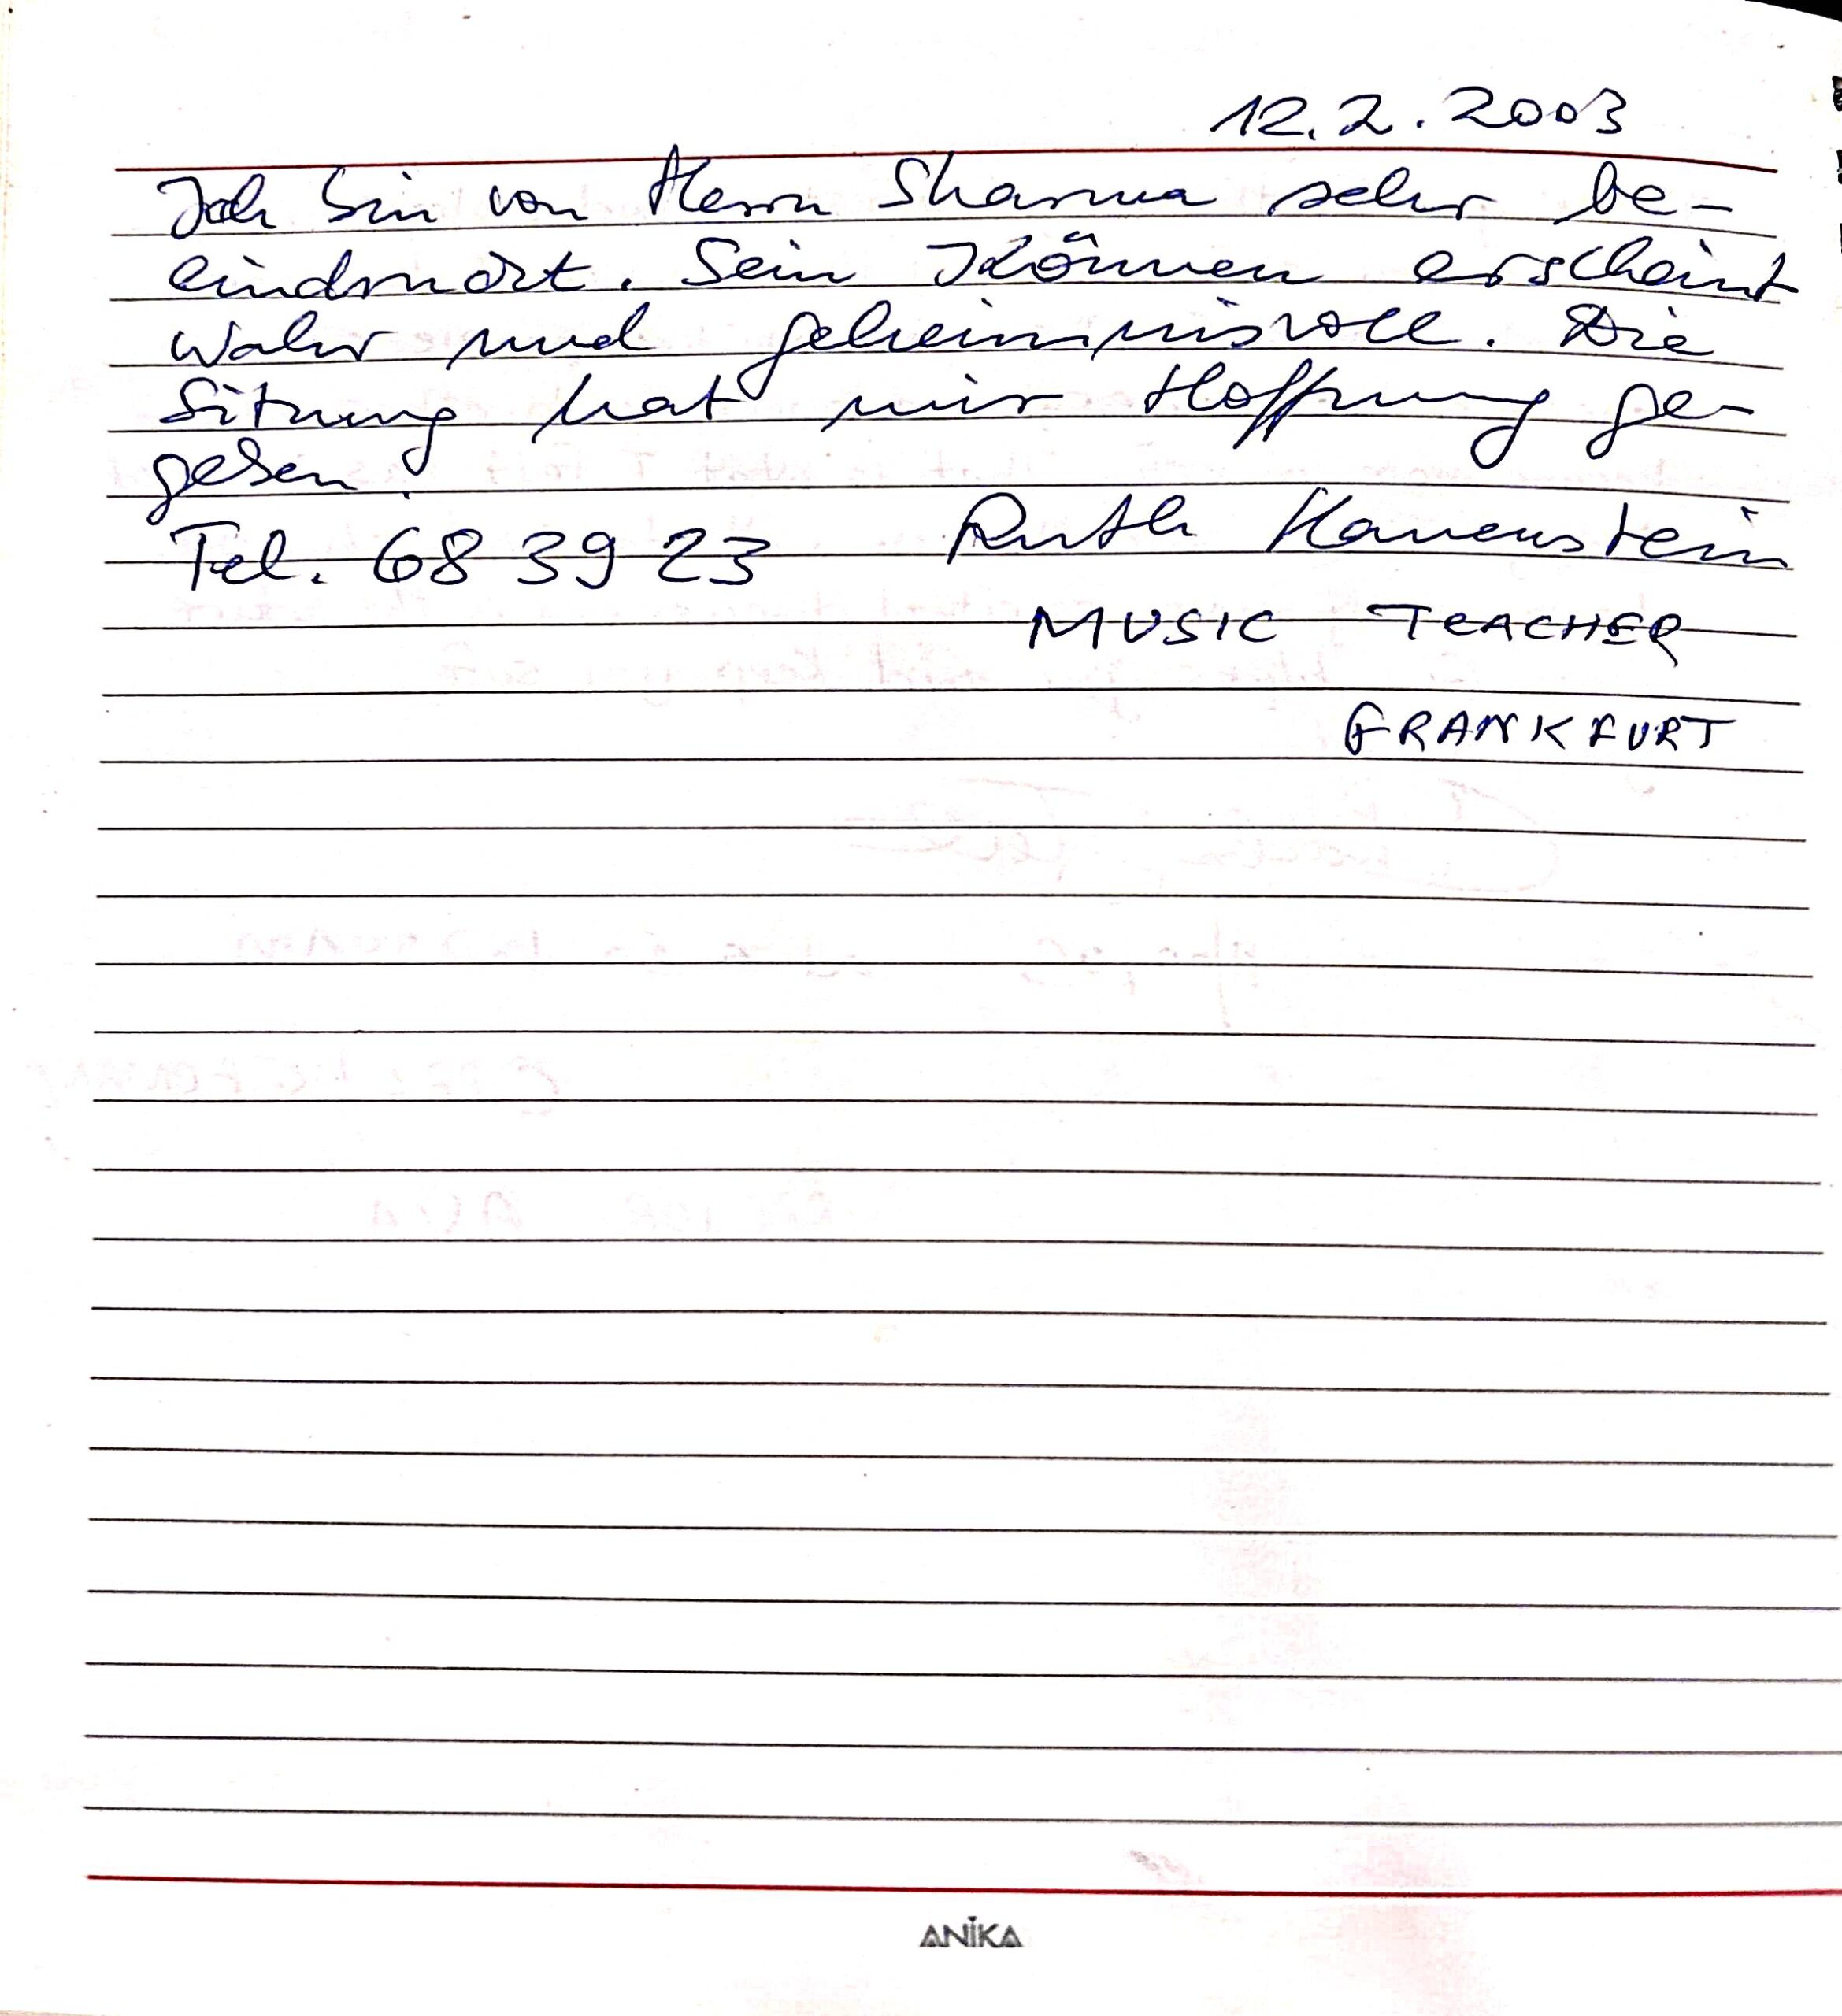 12.2.2003
Ich bin von Herrn Sharma sehr be-
eindruckt. Sein Können erscheint
wahr und geheimnisvoll. Die
Sitzung hat mir Hoffnung ge-
geben.
Tel. 68 39 23 Ruth Hauenstein
MUSIC TEACHER
FRANKFURT
ANIKA